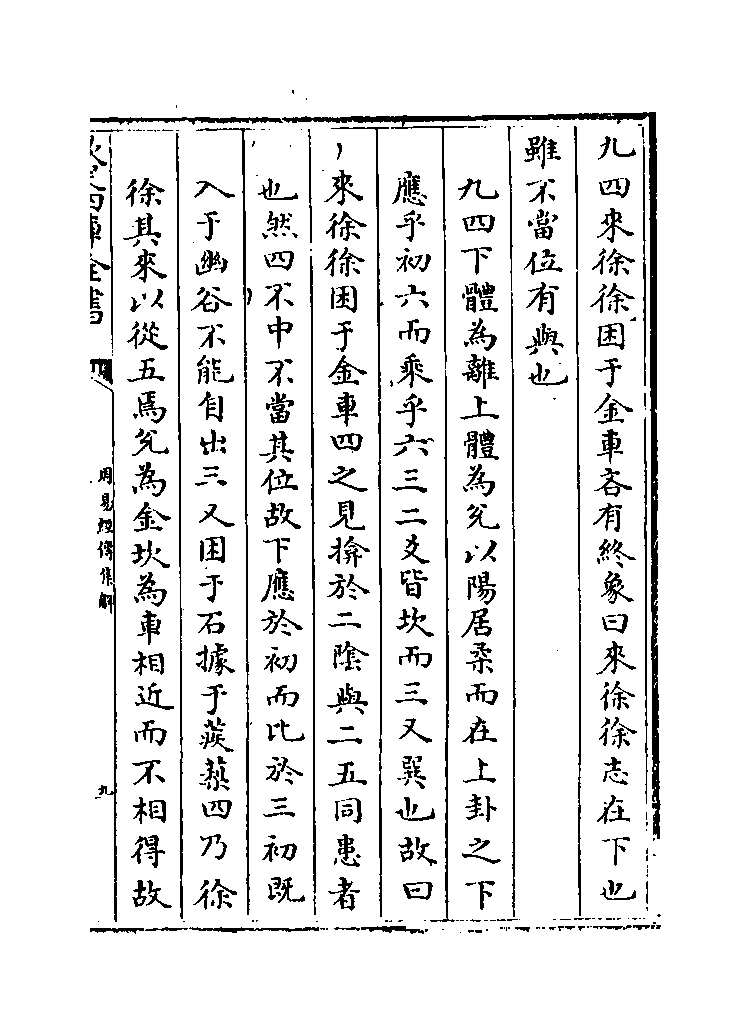 九四來徐徐困于金車吝有終象曰來徐徐志在下也
雖不當位有與也
九四下體為離上體為兊以陽居柔而在上卦之下
應乎初六而乘乎六三二爻皆坎而三又巽也故曰
來徐徐困于金車四之見揜於二陰與二五同患者
也然四不中不當其位故下應於初而比於三初既
入于幽谷不能自出三又困于石據于蒺蔾四乃徐
徐其來以從五焉兊為金坎為車相近而不相得故
欽定四庫全書
周易經傳集解
九